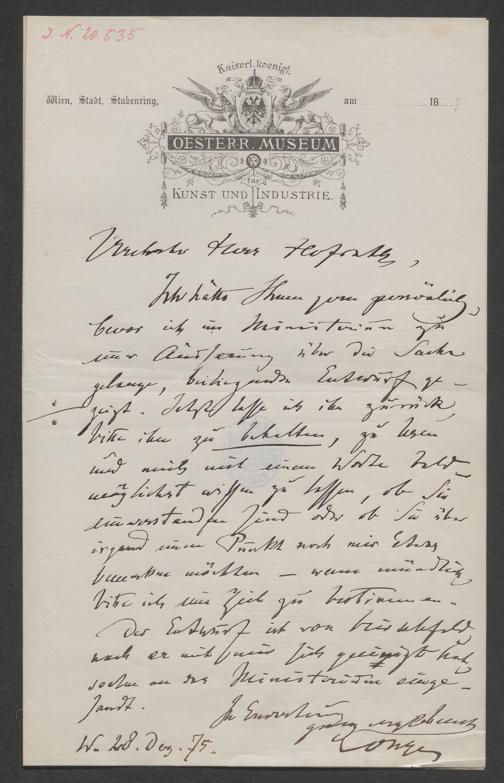 J. N. 20.535
Kaiserl. koenigl.
Wien, Stadt, Stubenring,
am
18
OESTERR. MUSEUM
für
KUNST UND INDUSTRIE.
Verehrter Herr Hofrath,
Ich hätte Ihnen gern persönlich,
bevor ich im Ministerium zu
einer Äußerung über die Sache
gelange, beiliegenden Entwurf ge-
zeigt. Jetzt lasse ich ihn zurück,
bitte ihn zu behalten, zu lesen
und mich mit einem Worte bald-
möglichst wissen zu lassen, ob Sie
einverstanden sind oder ob Sie über
irgend einen Punkt noch mir Etwas
bemerken möchten – wenn mündlich
bitte ich eine Zeit zu bestimmen.
Der Entwurf ist von
nach er mit sich geeinigt hat,
soeben an das Ministerium einge-
sandt.
In
W. 28. Dez. 75.